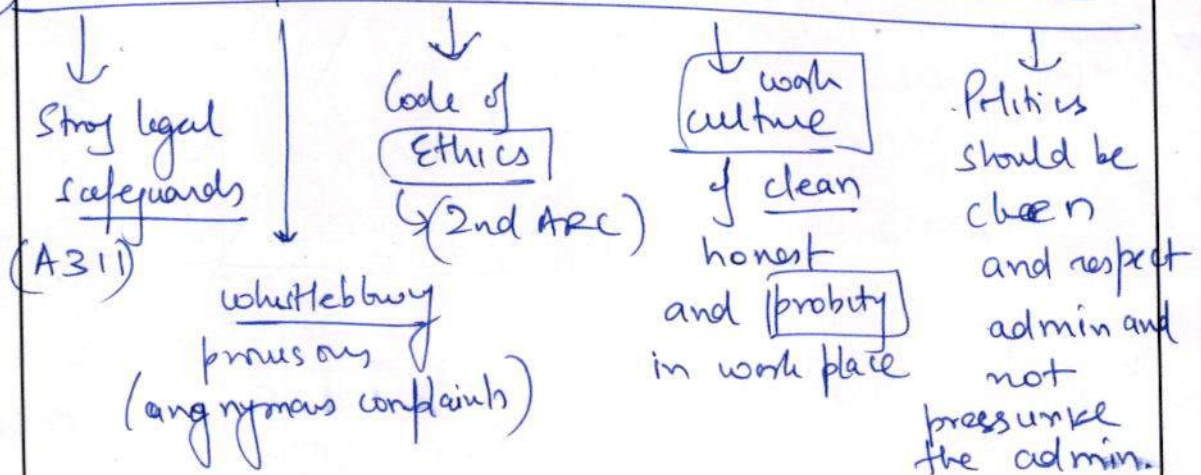 Strong legal
safeguards
(A311)
whistleblowing
provisions
(anonymous complaints)
Code of
Ethics
(2nd ARC)
work
culture
of clean
honest
and probity
in work place
Politics
should be
clean
and respect
admin and
not
pressurise
the admin.